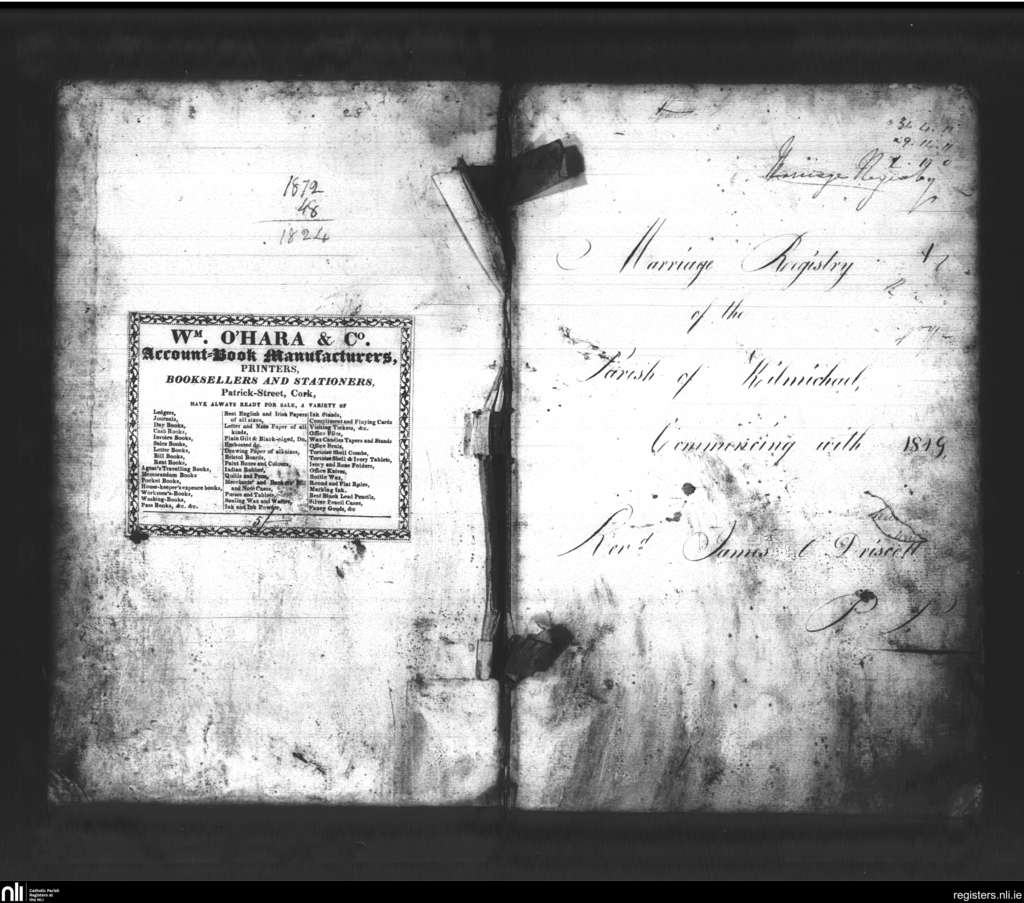 1872
48
1824
Wᴹ. O'HARA & Cº.
Account-Book Manufacturers,
PRINTERS,
BOOKSELLERS AND STATIONERS,
Patrick-Street, Cork,
HAVE ALWAYS READY FOR SALE, A VARIETY OF
Ledgers,
Journals,
Day Books,
Cash Books,
Invoice Books,
Sales Books,
Letter Books,
Bill Books,
Rent Books,
Agent's Travelling Books,
Memorandum Books
Pocket Books,
House-keeper's expence books,
Workmen's-Books,
Washing-Books,
Pass Books, &c. &c.
Best English and Irish Papers
of all sizes,
Letter and Note Paper of all
kinds,
Plain Gilt & Black-edged, Do.
Embossed do.
Drawing Paper of all sizes,
Bristol Boards,
Paint Boxes and Colours,
Indian Rubber,
Quills and Pens,
Merchants' and Bankers'
and Note Cases,
Purses and Tablets,
Sealing Wax and Wafers,
Ink and Ink Powder,
Ink Stands,
Compliment and Playing Cards
Visiting Tickets, &c.
Office Files,
Wax Candles Tapers and Stands
Office Seals,
Tortoise Shell Combs,
Tortoise Shell & Ivory Tablets,
Ivory and Bone Folders,
Office Knives,
Bottle Wax,
Round and Flat Rules,
Marking Ink,
Best Black Lead Pencils,
Silver Pencil Cases,
Fancy Goods, &c
5/
Marriage Registry
Marriage Registry
of the
Parish of Kilmichael,
Commencing with 1849
Revᵈ James O Driscoll
P P
nli
Catholic Parish
Registers at
the NLI
registers.nli.ie